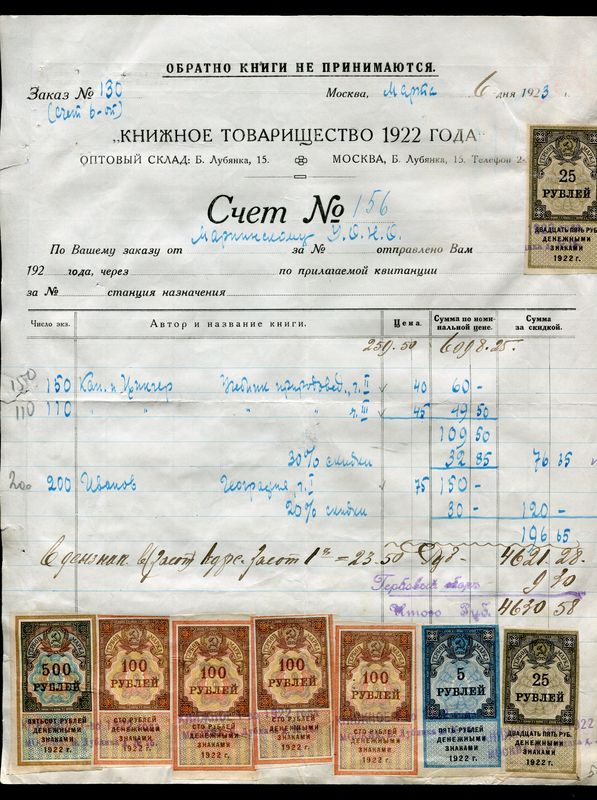 ОБРАТНО КНИГИ НЕ ПРИНИМАЮТСЯ.
Заказ № 130
Москва, Марта 6 дня 1923 г.
„КНИЖНОЕ ТОВАРИЩЕСТВО 1922 ГОДА"
ОПТОВЫЙ СКЛАД: Б. Лубянка, 15. МОСКВА, Б. Лубянка, 15. Телефон 2-
25
РУБЛЕЙ
ДВАДЦАТЬ ПЯТЬ РУБ.
ДЕНЕЖНЫМИ
ЗНАКАМИ
1922 г.
Счет № 156
Мариинскому У.О.Н.О.
По Вашему заказу от за № отправлено Вам
192 года, через по прилагаемой квитанции
за № станция назначения
Число экз. Автор и название книги. Цена. Сумма по номинальной цене. Сумма за скидкой.
259.50 6098.25.
150 150 Кап. и Цингер Учебник природовед., ч. II 40 60 -
110 110 " " " ч. III 45 49 50
109 50
30% скидки 32 85 76 65
200 200 Иванов География, ч. I 75 150 -
20% скидки 30 - 120 -
196 65
1 р = 23.50 4621.28.
Гербовый сбор 9 30
Итого Руб. 4630 58
500
РУБЛЕЙ
ПЯТЬСОТ РУБЛЕЙ
ДЕНЕЖНЫМИ
ЗНАКАМИ
1922 г.
100
РУБЛЕЙ
СТО РУБЛЕЙ
ДЕНЕЖНЫМИ
ЗНАКАМИ
1922 г.
100
РУБЛЕЙ
СТО РУБЛЕЙ
ДЕНЕЖНЫМИ
ЗНАКАМИ
1922 г.
100
РУБЛЕЙ
СТО РУБЛЕЙ
ДЕНЕЖНЫМИ
ЗНАКАМИ
1922 г.
100
РУБЛЕЙ
СТО РУБЛЕЙ
ДЕНЕЖНЫМИ
ЗНАКАМИ
1922 г.
5
РУБЛЕЙ
ПЯТЬ РУБЛЕЙ
ДЕНЕЖНЫМИ
ЗНАКАМИ
1922 г.
25
РУБЛЕЙ
ДВАДЦАТЬ ПЯТЬ РУБ.
ДЕНЕЖНЫМИ
ЗНАКАМИ
1922 г.